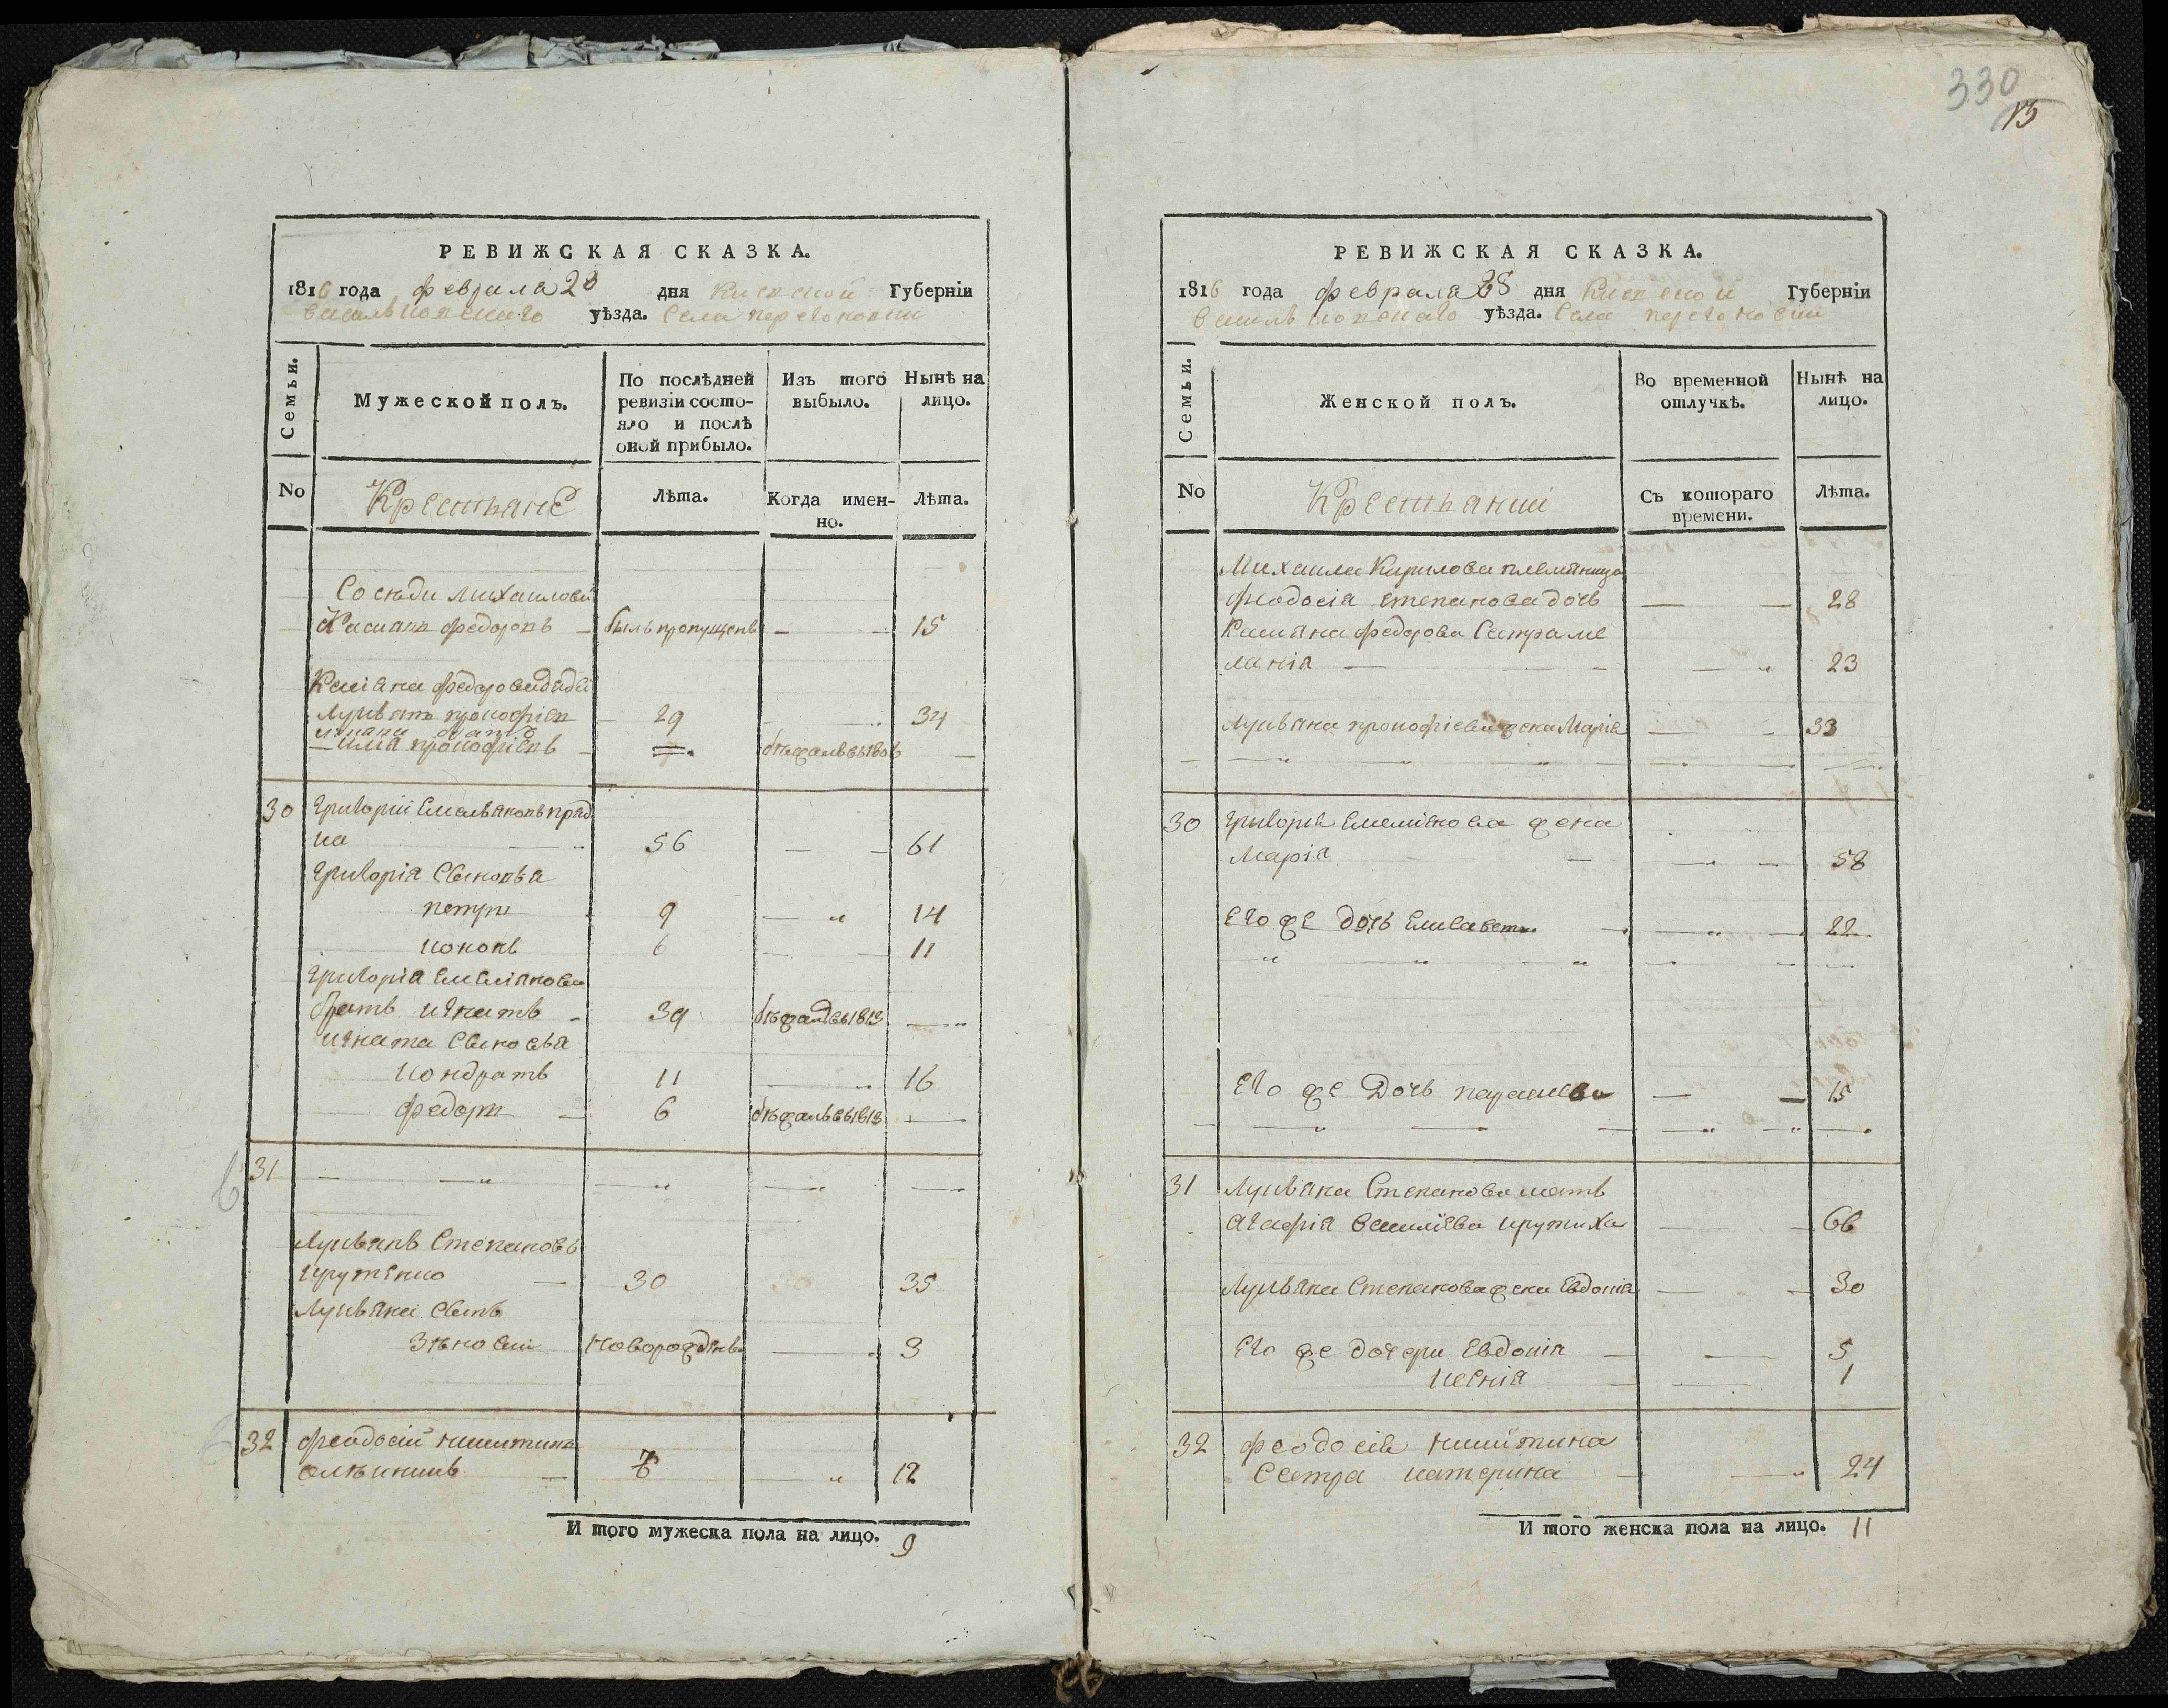 330
15
РЕВИЖСКАЯ СКАЗКА.
1816 года февраля 28 дня Киевской Губерніи
Васильковскаго уѣзда. Села
Семьи.
Мужеской полъ.
По послѣдней ревизіи состо-
яло и послѣ
оной прибыло.
Изъ того
выбыло.
Нынѣ на
лицо.
No
Крестьяне
Лѣта.
Когда имен-
но.
Лѣта.
Михаилова
Касіянъ Федоровъ — былъ пропущенъ — 15
Касіяна Федорова дядя
Лукьянъ Прокофіевъ — 29 — 34
Прокофіевъ — бѣжалъ въ
30 Григорій Емельяновъ
56 — 61
Григорія сыновья
Петръ 9 — 14
6 — 11
Григорія Емеліянова
братъ Игнатъ — 39 бѣжалъ въ 1813 —
Игната сыновья
Кондратъ 11 — 16
Федоръ — 6 бѣжалъ въ 1813 —
31 — — — —
Лукьянъ Степановъ
— 30 35
Лукьяна сынъ
Зѣновей новорожденъ — 3
32 Феодосій Никитинъ
— 12
И того мужеска пола на лицо. 9
РЕВИЖСКАЯ СКАЗКА.
1816 года февраля 28 дня Киевской Губерніи
Васильковскаго уѣзда. Села
Семьи.
Женской полъ.
Во временной
отлучкѣ.
Нынѣ на
лицо.
No
Крестьянки
Съ котораго
времени.
Лѣта.
Михаила Кирилова племяница
Феодосія Степанова дочь — 28
Касіяна Федорова сестра Ме
ланія — — 23
Лукьяна Прокофіева жена Марія — 33
30 Григорія Емеліянова жена
Марія — — 58
Его же дочь Елисавета — — 22
Его же дочь Параскева — 15
31 Лукьяна Степанова мать
Агафія Василіева — 66
Лукьяна Степанова жена Евдокія — 30
Его же дочери Евдокія — 5
Ксенія — 1
32 Феодосія Никитина
сестра Катерина — — 24
И того женска пола на лицо. 11